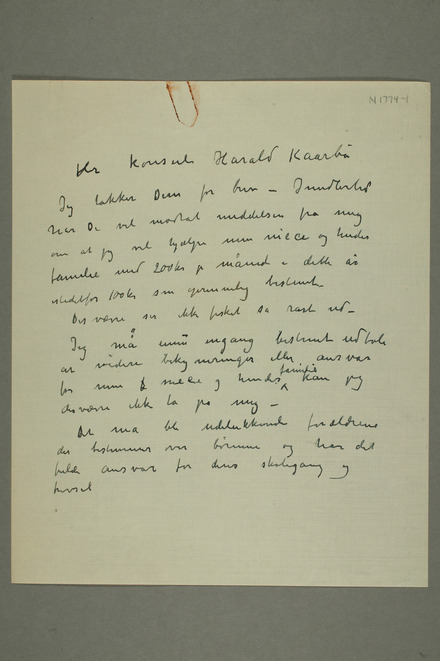 N 1774-1
Hr konsul Harald Kaarbø
Jeg takker Dem for brev – Imidlertid
har De vel modtat meddelsen fra mig
om at jeg vil hjælpe min niece og hendes
familie med 200kr pr måned i dette år
istedetfor 100kr som oprindelig bestemt
Des værre ser ikke fisket så rart ud –
Jeg må ennu engang bestemt udtale
at videre bekymringer eller ansvar
for min niece og hendes familie kan jeg
desværre ikke ta på mig –
Det må bli udelukkende forældrene
der bestemmer over børnene og har det
fulde ansvar for deres skolegang og
trivsel